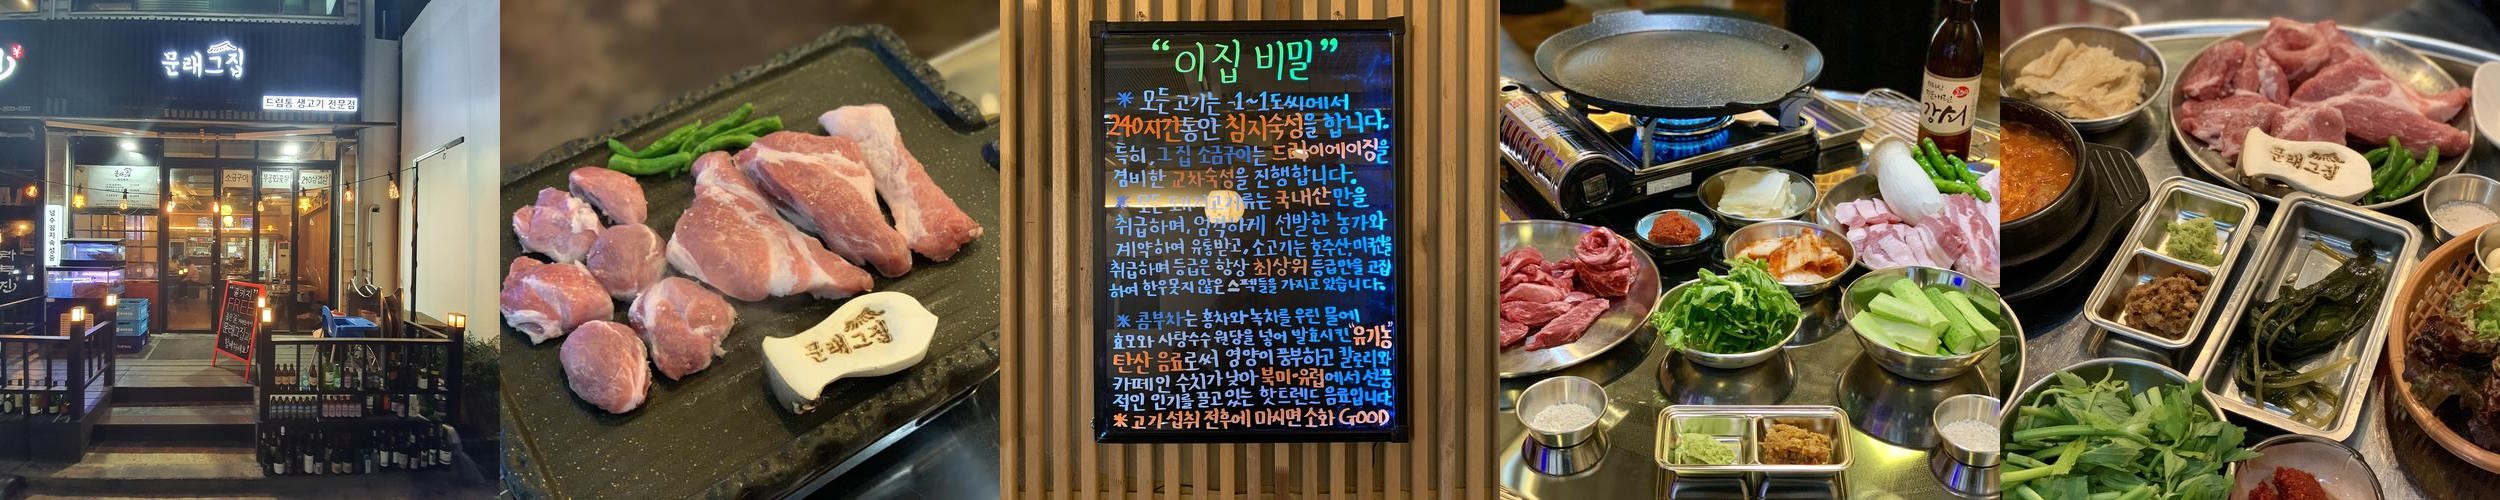 문래그집
드럼통 생고기 전문점
소금구이
240삼겹살
냉수침지숙성중
"콜키지"
FREE
문래그집
"이집 비밀"
* 모든 고기는 -1~1도씨에서
240시간동안 침지숙성을 합니다.
특히, 그 집 소금구이는 드라이에이징을
겸비한 교차숙성을 진행합니다.
* 모든 돼지고기류는 국내산만을
취급하며, 엄격하게 선발한 농가와
계약하여 유통받고, 소고기는 호주산,미국산을
취급하며 등급은 항상 최상위 등급만을 고집
하여 한우못지 않은 스펙들을 가지고 있습니다.
* 콤부차는 홍차와 녹차를 우린 물에
효모와 사탕수수 원당을 넣어 발효시킨 "유기농"
탄산 음료로써 영양이 풍부하고 칼로리와
카페인 수치가 낮아 북미·유럽에서 선풍
적인 인기를 끌고 있는 핫트렌드 음료입니다.
* 고기섭취 전후에 마시면 소화 GOOD
문래그집